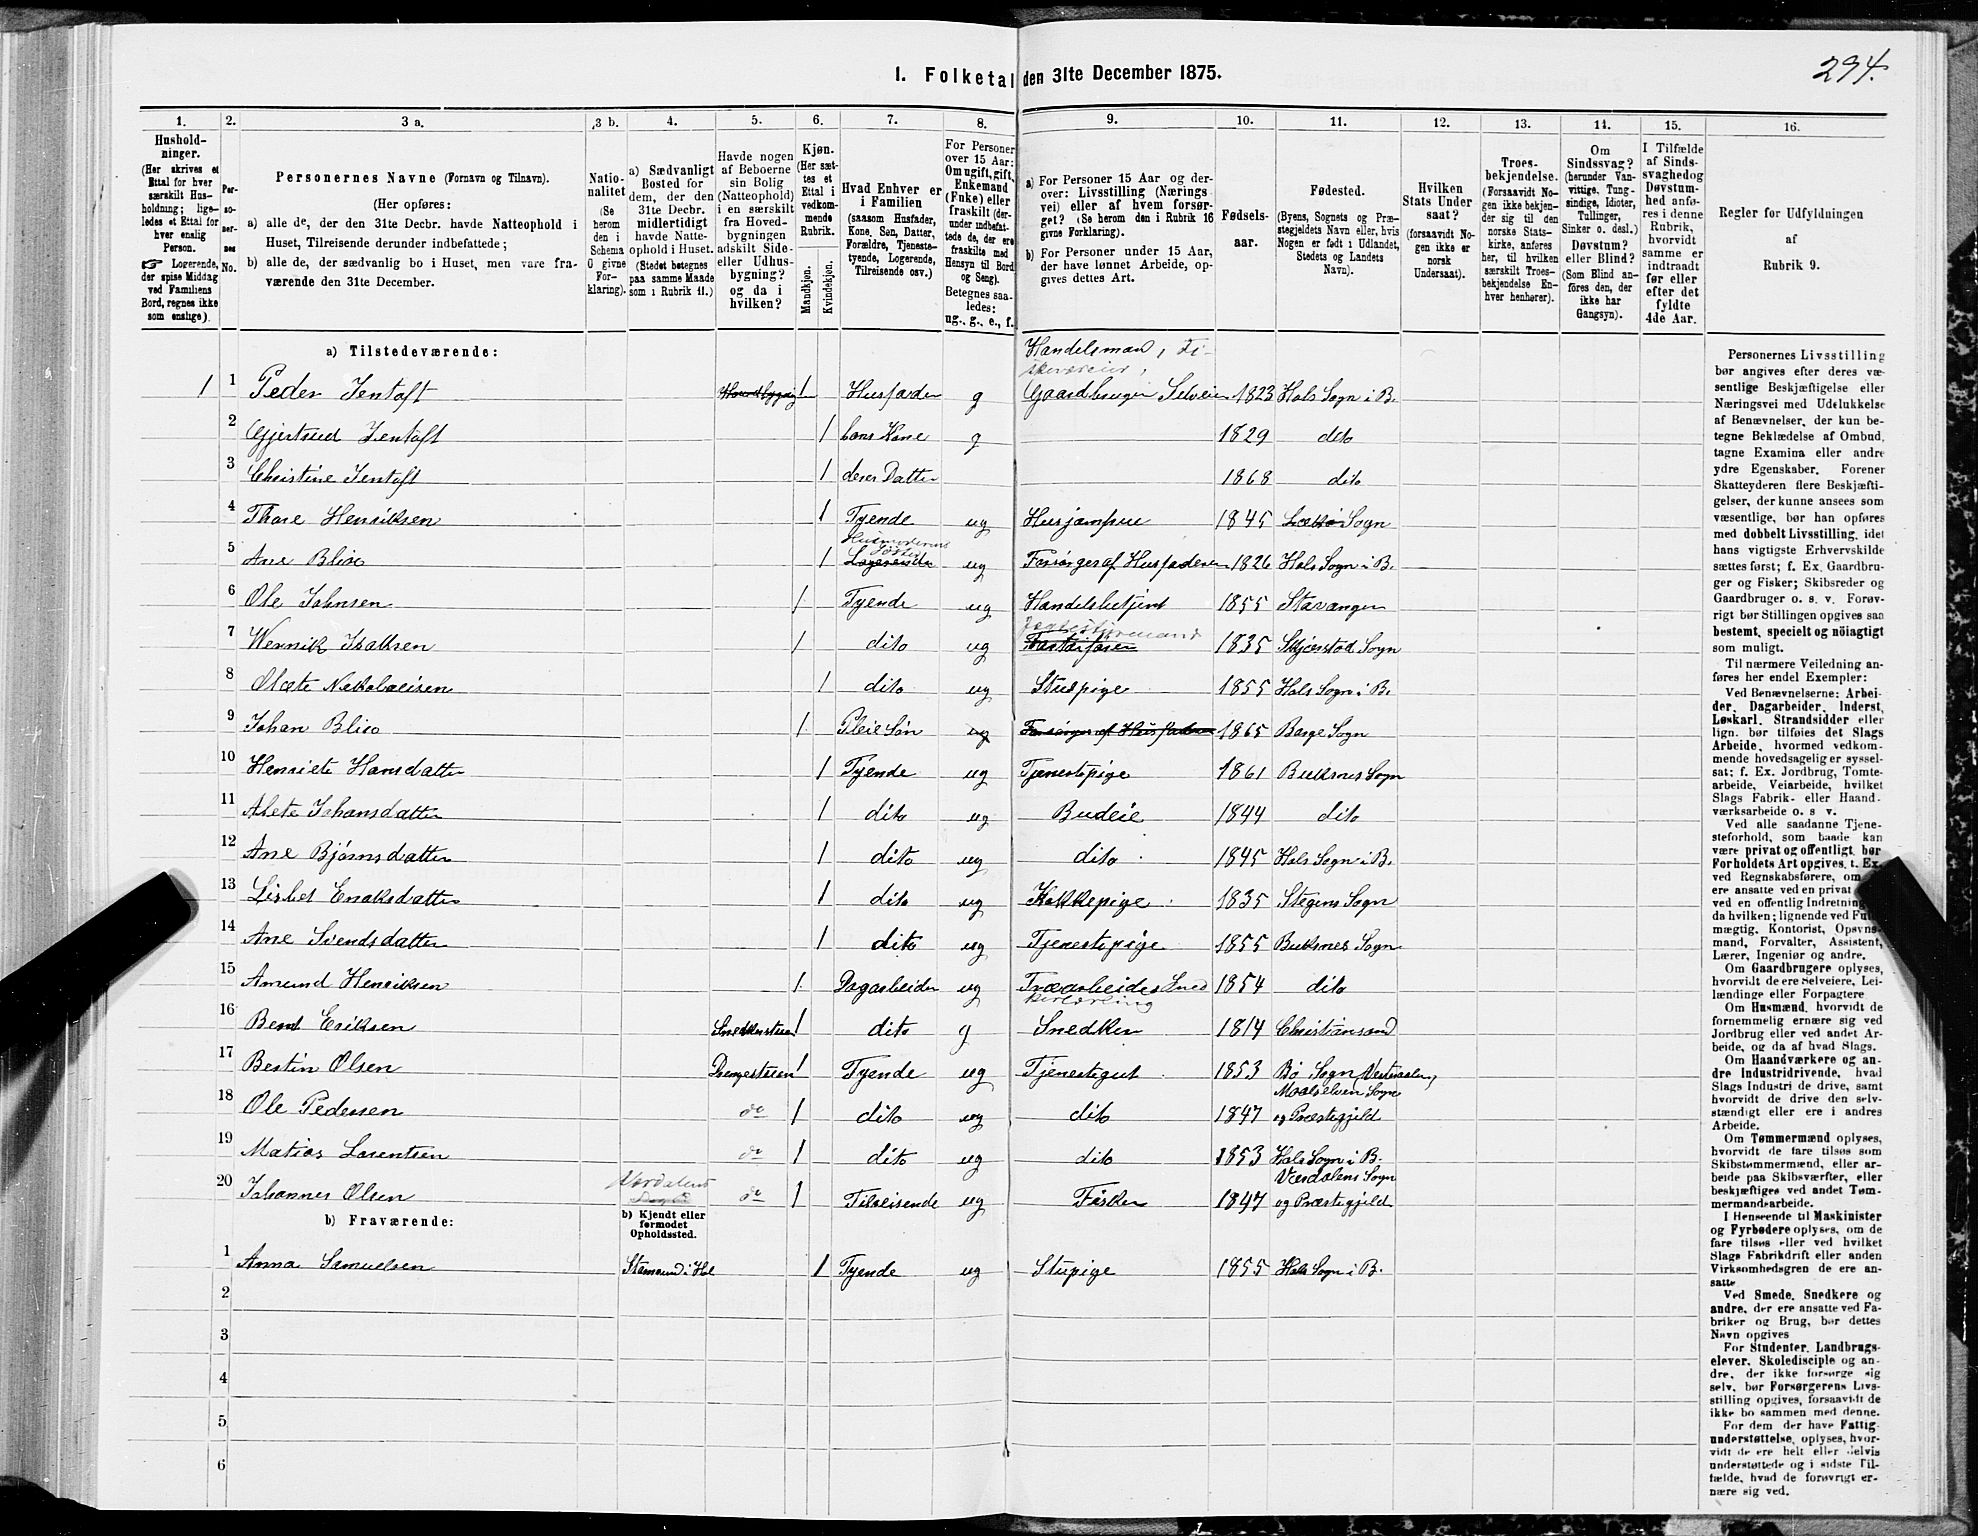 294.
I. Folketal den 31te December 1875.
1. 2. 3 a. 3 b. 4. 5. 6. 7. 8. 9. 10. 11. 12. 13. 14. 15. 16.
Hushold-
ninger.
(Her skrives et
Ettal for hver
særskilt Hus-
holdning; lige-
ledes et Ettal for
hver enslig
Person.
☞ Logerende,
der spise Middag
ved Familiens
Bord, regnes ikke
som enslige).
Per-
so-
ner-
nes
No.
Personernes Navne (Fornavn og Tilnavn).
(Her opføres:
a) alle de, der den 31te Decbr. havde Natteophold i
Huset, Tilreisende derunder indbefattede;
b) alle de, der sædvanlig bo i Huset, men vare fra-
værende den 31te December.
Natio-
nalitet
(Se
herom
den i
Schema
0 givne
For-
klaring).
a) Sædvanligt
Bosted for
dem, der den
31te Decbr.
midlertidigt
havde Natte-
ophold i Huset.
(Stedet betegnes
paa samme Maade
som i Rubrik 11.)
Havde nogen
af Beboerne
sin Bolig
(Natteophold)
i en særskilt
fra Hoved-
bygningen
adskilt Side-
eller Udhus-
bygning?
og da i
hvilken?
Kjøn.
(Her sæt-
tes et
Ettal i
vedkom-
mende
Rubrik.
Mandkjøn.
Kvindekjøn.
Hvad Enhver er
i Familien
(saasom Husfader,
Kone, Søn, Datter,
Forældre, Tjeneste-
tyende, Logerende,
Tilreisende osv.)
For Personer
over 15 Aar:
Om ugift, gift,
Enkemand
(Enke) eller
fraskilt (der-
under indbefat-
tede de, der ere
fraskilte med
Hensyn til Bord
og Seng).
Betegnes saa-
ledes:
ug., g., e., f.
a) For Personer 15 Aar og der-
over: Livsstilling (Nærings
vei) eller af hvem forsør-
get? (Se herom den i Rubrik 16
givne Forklaring).
b) For Personer under 15 Aar,
der have lønnet Arbeide, op-
gives dettes Art.
Fødsels-
aar.
Fødested.
(Byens, Sognets og Præ-
stegjeldets Navn eller, hvis
Nogen er født i Udlandet,
Stedets og Landets
Navn).
Hvilken
Stats Under
saat?
(forsaavidt No-
gen ikke er
norsk
Undersaat).
Troes-
bekjendelse.
(Forsaavidt No-
gen ikke bekjen-
der sig til den
norske Stats-
kirke, anføres
her, til hvilken
særskilt Troes-
bekjendelse En-
hver henhører).
Om
Sindssvag?
(herunder Van-
vittige, Tung-
sindige, Idioter,
Tullinger,
Sinker o. desl.)
Døvstum?
eller Blind?
(Som Blind an-
føres den, der
ikke har
Gangsyn).
I Tilfælde
af Sinds-
svaghed og
Døvstum-
hed anfø-
res i denne
Rubrik,
hvorvidt
samme er
indtraadt
før eller
efter det
fyldte
4de Aar.
Regler for Udfyldningen
af
Rubrik 9.
a) Tilstedeværende:
Handelsmand, Fi-
skeværeier,
1 1 Peder Jentoft 1 Husfader g Gaardbruger Selveier 1823 Hols Sogn i B.
2 Gjertrud Jentoft 1 hans Kone g 1829 dito
3 Christine Jentoft 1 deres Datter 1868 dito
4 Thore Henriksen 1 Tyende ug Husjomfru 1845 Sogn
Husmoderens
Søster
5 Ane Blix 1 Logerende ug Forsørges af Husfaderen 1826 Hols Sogn i B.
6 Ole Johnsen 1 Tyende ug Handelsbetjent 1855 Stavanger
Jagtestyrmand
7 Wernik Isaksen 1 dito ug 1835 Skjerstad Sogn
8 Olæte Nikolaisen 1 dito ug Stuepige 1855 Hols Sogn i B.
9 Johan Blix 1 Pleie Søn ug Forsørges af Husfaderen 1865 Borge Sogn
10 Henriete Hansdatter 1 Tyende ug Tjenestepige 1861 Buksnes Sogn
11 Alete Johansdatter 1 dito ug Budeie 1844 dito
12 Ane Bjørnsdatter 1 dito ug dito 1845 Hols Sogn i B.
13 Lisbet Enoksdatter 1 dito ug Kokkepige 1835 Stegens Sogn
14 Ane Svendsdatter 1 dito ug Tjenestepige 1855 Buksnes Sogn
15 Amund Henriksen 1 Dagarbeider ug Træarbeider Sned 1854 dito
kerlærling
16 Bernt Eriksen Snedkerstuen 1 dito g Snedker 1814 Christiansand
17 Bertin Olsen Drengestuen 1 Tyende ug Tjenestegut 1853 Bø Sogn Vesteraalen,
Maalselven Sogn
18 Ole Pedersen do 1 dito ug dito 1847 og Præstegjeld
19 Matias Lorentsen do 1 dito ug dito 1853 Hols Sogn i B.
Værdalens Sogn
20 Johannes Olsen Værdalens do 1 Tilreisende ug Fisker 1847 og Præstegjeld
b) Fraværende:
b) Kjendt eller
formodet
Opholdssted.
1 Anna Samuelsen Stamsund i Hol 1 Tyende ug Stupige 1855 Hols Sogn i B.
2
3
4
5
6
Personernes Livsstilling
bør angives efter deres væ-
sentlige Beskjæftigelse eller
Næringsvei med Udelukkelse
af Benævnelser, der kun be-
tegne Beklædelse af Ombud,
tagne Examina eller andre
ydre Egenskaber. Forener
Skatteyderen flere Beskjæfti-
gelser, der kunne ansees som
væsentlige, bør han opføres
med dobbelt Livsstilling, idet
hans vigtigste Erhvervskilde
sættes først; f. Ex. Gaardbru-
ger og Fisker; Skibsreder og
Gaardbruger o. s. v. Forøv-
rigt bør Stillingen opgives saa
bestemt, specielt og nöiagtigt
som muligt.
Til nærmere Veiledning an-
føres her endel Exempler:
Ved Benævnelserne: Arbei-
der, Dagarbeider, Inderst,
Løskarl, Strandsidder eller
lign. bør tilføies det Slags
Arbeide, hvormed vedkom-
mende hovedsagelig er syssel-
sat; f. Ex. Jordbrug, Tomte-
arbeide, Veiarbeide, hvilket
Slags Fabrik- eller Haand-
værksarbeide o. s v.
Ved alle saadanne Tjene-
steforhold, som baade kan
være privat og offentligt, bør
Forholdets Art opgives, t. Ex.
ved Regnskabsførere, om
ere ansatte ved en privat
ved en offentlig Indretning
da hvilken; lignende ved Fuld
mægtig, Kontorist, Opsyns-
mand, Forvalter, Assistent,
Lærer, Ingeniør og andre.
Om Gaardbrugere oplyses,
hvorvidt de ere Selveiere, Lei-
lændinge eller Forpagtere
Om Husmænd, hvorvidt de
fornemmelig ernære sig ved
Jordbrug eller ved andet Ar-
beide, og da af hvad Slags.
Om Haandværkere og an-
dre Industridrivende, hvad
Slags Industri de drive, samt
hvorvidt de drive den selv-
stændigt eller ere i andres
Arbeide.
Om Tømmermænd oplyses,
hvorvidt de fare tilsøs som
Skibstømmermænd, eller ar-
beide paa Skibsværfter, eller
beskjæftiges ved andet Tøm-
mermandsarbeide.
I Henseende til Maskinister
og Fyrbødere oplyses, om de
fare tilsøs eller ved hvilket
Slags Fabrikdrift eller anden
Virksomhedsgren de ere an-
satte
Ved Smede, Snedkere og
andre, der ere ansatte ved Fa-
briker og Brug, bør dettes
Navn opgives
For Studenter, Landbrugs-
elever, Skoledisciple og an-
dre, der ikke forsørge sig
selv, bør Forsørgerens Livs-
stilling opgives, forsaavidt de
ikke bo sammen med denne.
For dem der have Fattig-
understøttelse, oplyses, hvor-
vidt de ere helt eller delvis
understøttede og i sidste Til-
fælde, hvad de forøvrigt er-
nære sig ved.